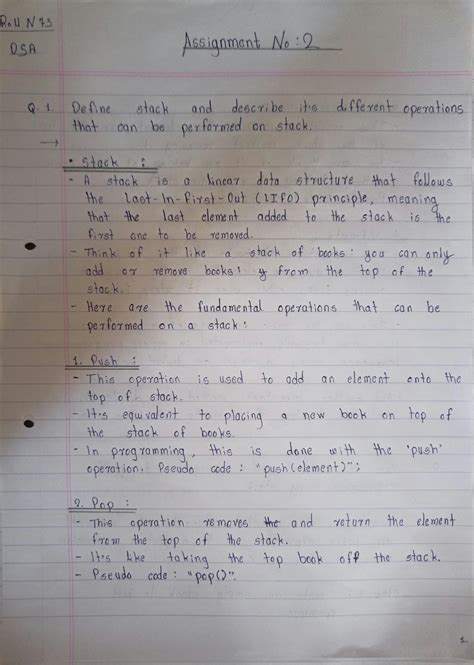 Roll N 73
DSA
Assignment No : 2
Q. 1. Define stack and describe it's different operations
that can be performed on stack.
→
• Stack :
- A stack is a linear data structure that follows
the Last-In-First-Out (LIFO) principle, meaning
that the last element added to the stack is the
first one to be removed.
- Think of it like a stack of books: you can only
add or remove books from the top of the
stack.
- Here are the fundamental operations that can be
performed on a stack:
1. Push :
- This operation is used to add an element onto the
top of stack.
- It's equivalent to placing a new book on top of
the stack of books.
- In programming, this is done with the 'push'
operation. Pseudo code : "push(element)";
2. Pop :
- This operation removes the and return the element
from the top of the stack.
- It's like taking the top book off the stack.
- Pseudo code : "pop()".